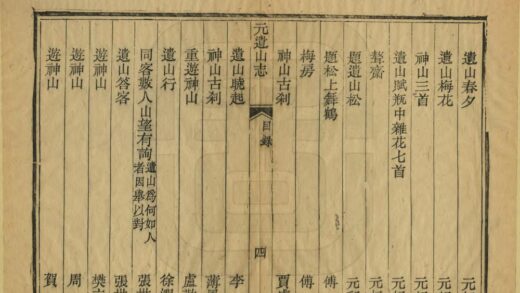 遺山春夕 元
遺山梅花 元
神山三首 元
遺山賦瓶中雜花七首 元
聱齋 元
題遺山松 元
題松上舞鶴 傅
梅房 傅
神山古刹 賈
元遺山志 目錄 四
遺山晚起 李
神山古刹 薄
重遊神山 盧
遺山行 徐
同客數人山望有詢遺山爲何如人者因舉以對 張
遺山答客 張
遊神山 樊
遊神山 周
遊神山 賀